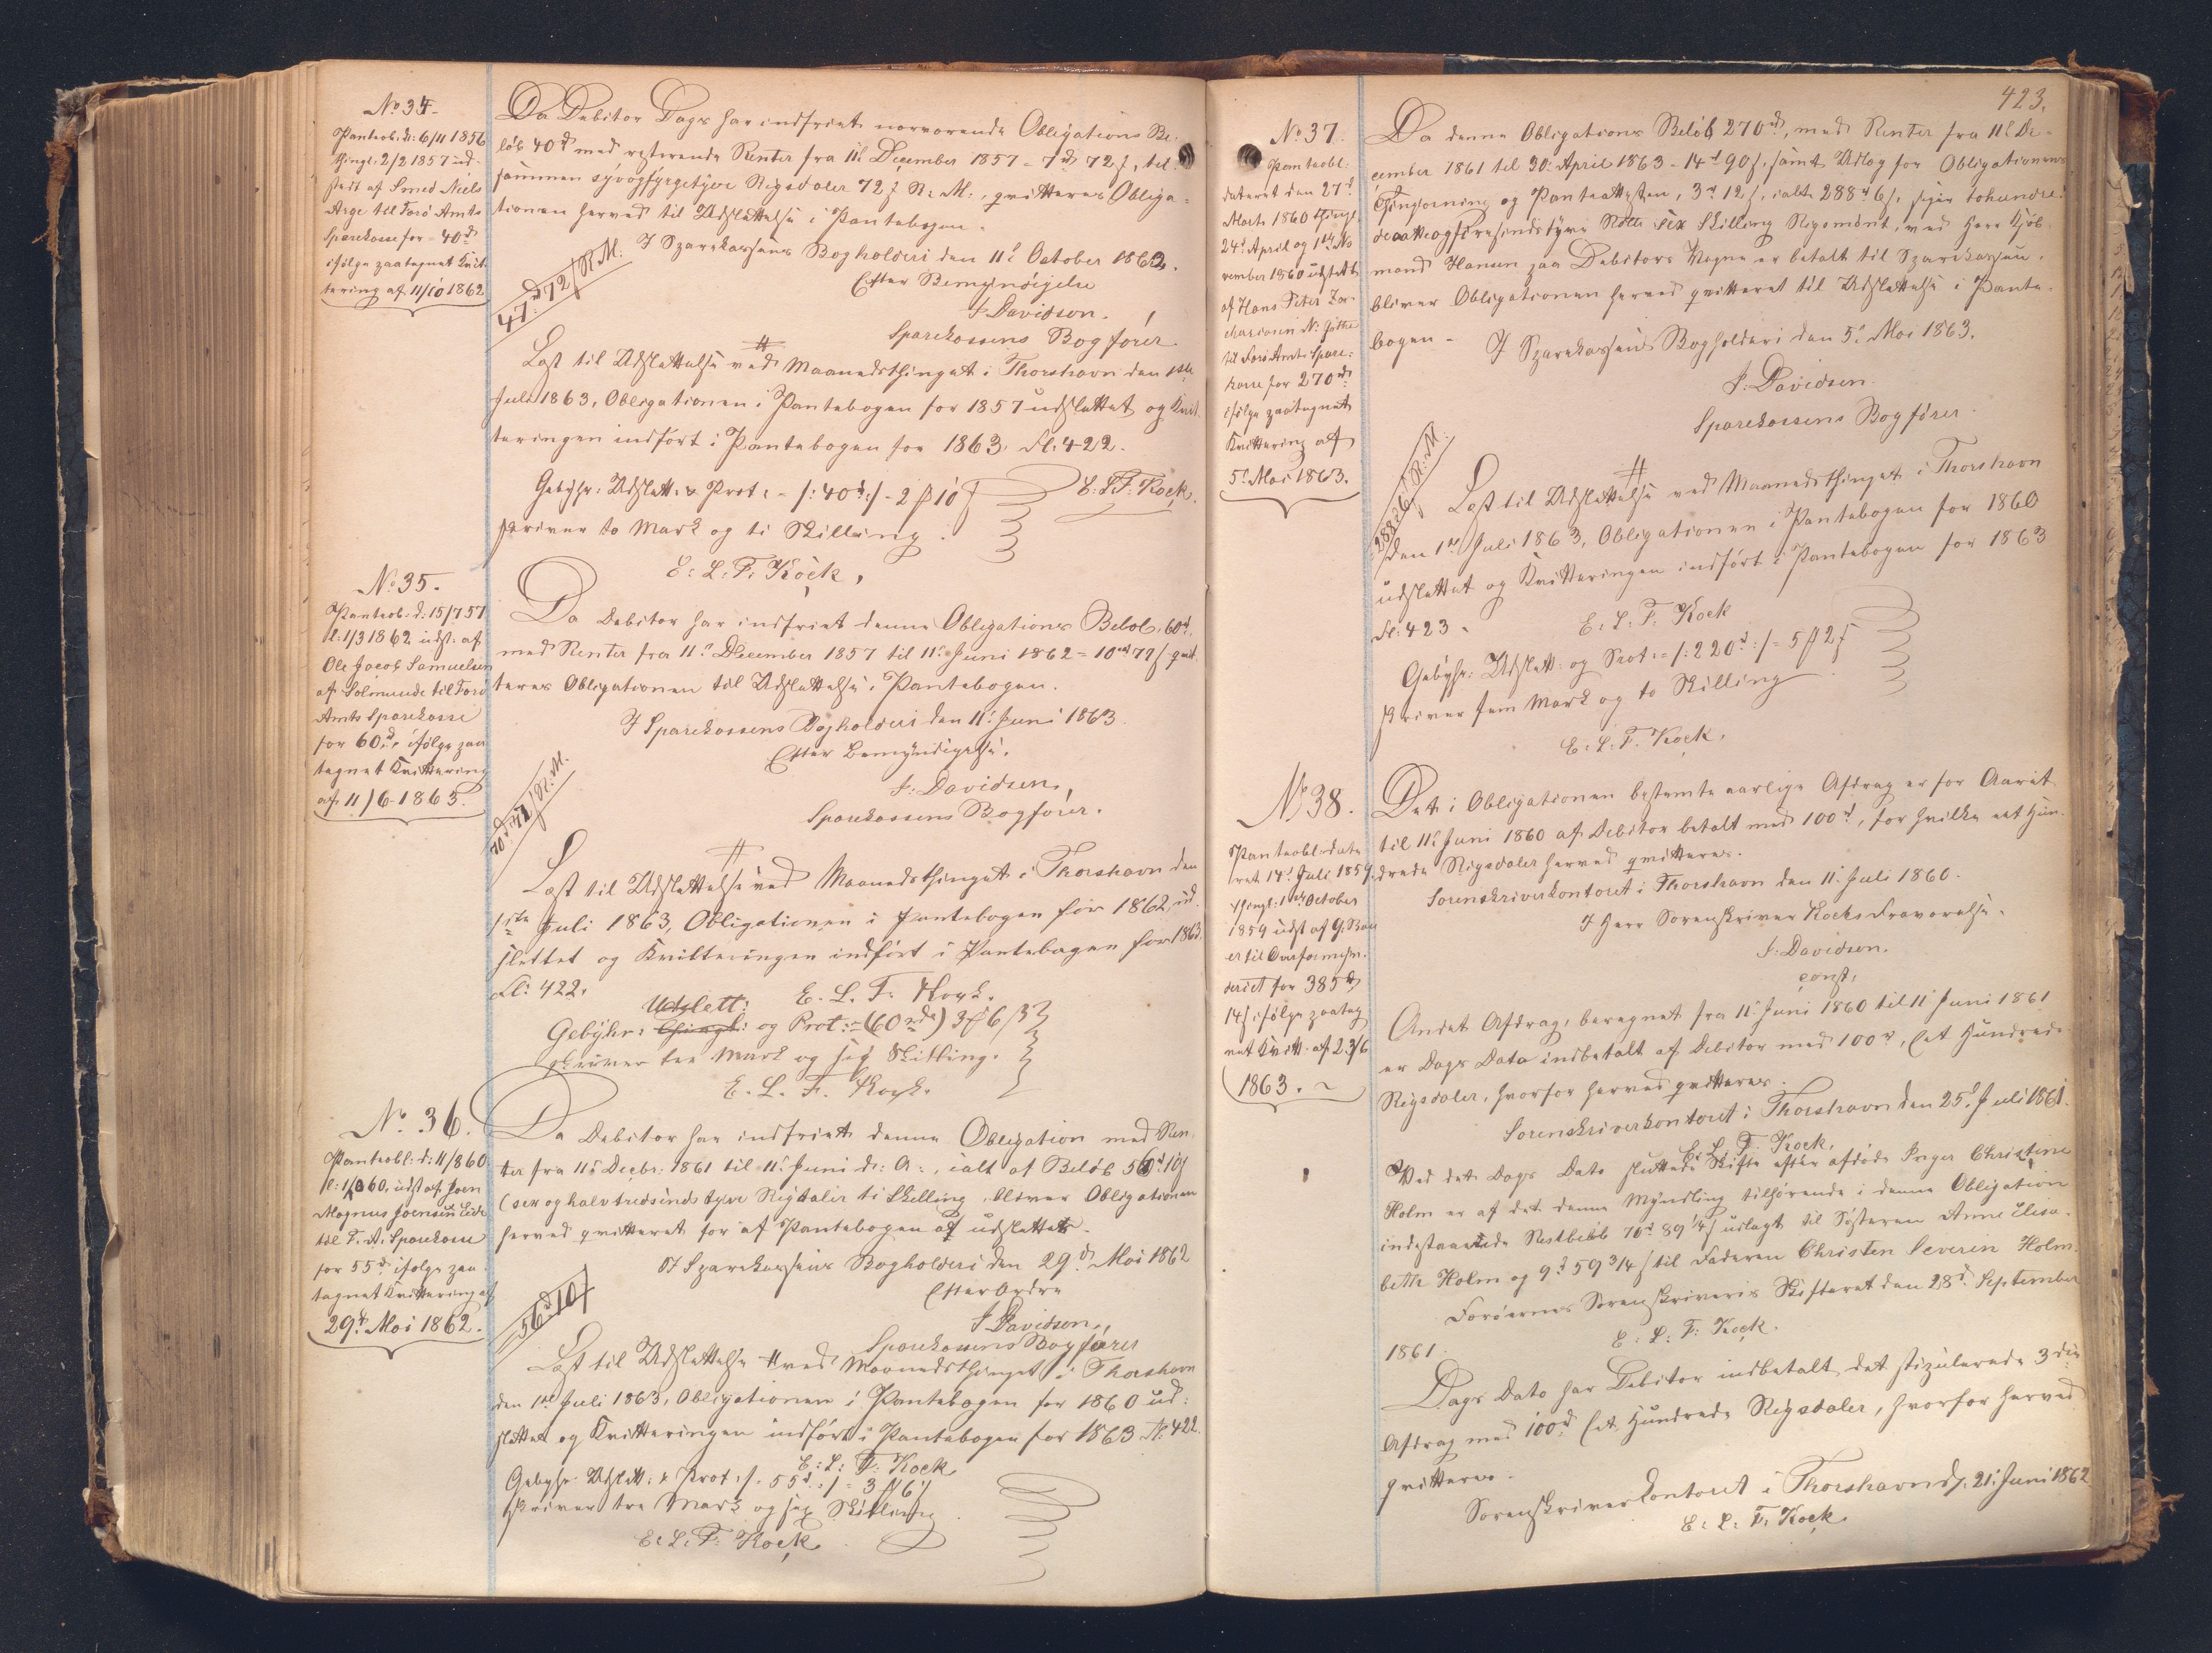 No 34.
Panteob. d: 6/11 1856
thingl: 2/2 1857 ud-
stedt af Smed Niels
Arge til Farö Amts
Sparekasse for 40d
ifölge paategnet Kvit-
tering af 11/10 1862
Da Debitor Dags har indfriet nærværende Obligations Be-
löb 40d med resterende Renter fra 11t December 1857 = 7d 72s, til-
sammen syvogfyrgetyve Rigsdaler 72s R: M:, qvitteres Obliga-
tionen herved til Udslettelse i Pantebogen.
I Sparekassens Bogholderi den 11t October 1862.
Efter Bemyndigelse
J. Davidsen.
Sparekassens Bogförer.
47d 72s R.M.
Læst til Udslettelse ved Maanedsthinget i Thorshavn den 1ste
Juli 1863, Obligationen i Pantebogen for 1857 udslettet og Kvit-
teringen indfört i Pantebogen for 1863. Fl: 422.
E: L: F: Kock.
Gebyhr: Udslett: & Prot: - /: 40d :/ - 2 ß 10 s
skriver to Mark og ti Skilling.
E: L: F: Kock.
No 35.
Panteob. d: 15/7 57
l: 1/3 1862 udst. af
Ole Jacob Samuelsen
af Solmunde til Farö
Amts Sparekasse
for 60d, ifölge paa-
tegnet Kvittering
af 11/6 1863.
Da Debitor har indfriet denne Obligations Belöb, 60d,
med Renter fra 11t December 1857 til 11t Juni 1862 = 10d 77s qvit-
teres Obligationen til Udslettelse i Pantebogen.
I Sparekassens Bogholderi den 11t Juni 1863.
Efter Bemyndigelse.
J. Davidsen,
Sparekassens Bogförer.
70d 77s R.M.
Læst til Udslettelse ved Maanedsthinget i Thorshavn den
1ste Juli 1863, Obligationen i Pantebogen for 1862, ud-
slettet og Kvitteringen indfört i Pantebogen for 1863
Fl: 422.
E. L. F. Kock.
Udslett:
Gebyhr: Thingl: og Prot: - (60 rd) 3 ß 6 s
skriver tre Mark og sex Skilling.
E. L. F. Kock.
No 36.
Panteobl: d: 11/8 60
l: 1/ 60, udst af Joen
Magnus Joensen Eide
til F. A. Sparekasse
for 55d ifölge paa-
tegnet Kvittering af
29d Mai 1862.
Da Debitor har indfriet denne Obligation med Ren-
ter fra 11t Decbr: 1861 til 11t Juni d: A:, ialt et Belöb 56d 10s
(sex og halvtredsindstyve Rigsdaler ti Skilling, bliver Obligationen
herved qvitteret for af Pantebogen at udslettes.
I Sparekassens Bogholderi den 29d Mai 1862
Efter Ordre
J. Davidsen,
Sparekassens Bogförer
56d 10s
Læst til Udslettelse ved Maanedsthinget i Thorshavn
den 1ste Juli 1863, Obligationen i Pantebogen for 1860 ud-
slettet og Kvitteringen indfört i Pantebogen for 1863 Fl: 422.
E: L: F: Kock
Gebyhr Udslett: & Prot: /: 55d :/ = 3 ß 6 s
skriver tre Mark og sex Skilling.
E: L: F: Kock.
423.
No 37.
Panteobl:
dateret den 27d
Marts 1860 thingl.
24d April og 1ste No-
vember 1860 udstedt
af Hans Peter Za-
chariasen N: Göthe
til Farö Amts Spare-
kasse for 270rd
ifölge paategnet
Kvittering af
5t Mai 1863.
Da denne Obligations Belöb 270rd, med Renter fra 11t De-
cember 1861 til 30 April 1863 - 14d 90s, samt Udlæg for Obligationens
Thinglæsning og Panteattesten, 3d 12s, ialt 288d 6s, siger tohundre-
deotteogfiresindstyve Rdlr sex Skilling Rigsmönt, ved Herr Kjöb-
mand Hansen paa Debitors Vegne er betalt til Sparekassen,
bliver Obligationen herved qvitteret til Udslettelse i Pante-
bogen.
I Sparekassens Bogholderi den 5t Mai 1863.
J. Davidsen
Sparekassens Bogförer
288d 6s R.M.
Læst til Udslettelse ved Maanedsthinget i Thorshavn
den 1ste Juli 1863, Obligationen i Pantebogen for 1860
udslettet og Kvitteringen indfört i Pantebogen for 1863
Fl: 423.
E. L. F. Kock
Gebyhr: Udslett: og Prot: - /: 220d :/ - 5 ß 2 s
skriver fem Mark og to Skilling
E. L. F. Kock.
No 38.
Panteobl: date-
ret 14d Juli 1859.
thingl: 1ste October
1859 udst af G.
er til Overformyn-
deriet for 385d
14s ifölge paateg-
net Kvitt. af 23/6
1863.
Det i Obligationen bestemte aarlige Afdrag er for Aaret
til 11t Juni 1860 af Debitor betalt med 100d, for hvilke eet Hun-
drede Rigsdaler herved qvitteres.
Sorenskriverkontoret i Thorshavn den 11 Juli 1860.
I Herr Sorenskriver Kocks Fraværelse.
J. Davidsen.
const.
Andet Afdrag, beregnet fra 11t Juni 1860 til 11t Juni 1861
er Dags Dato indbetalt af Debitor med 100d, (et Hundrede
Rigsdaler, hvorfor herved qvitteres.
Sorenskriverkontoret i Thorshavn den 25d Juli 1861.
E. L. F. Kock.
Ved det Dags Dato sluttede Skifte efter afdöde Inger Christine
Holm er af det denne Myndling tilhörende i denne Obligation
indestaaende Restbelöb 76d 89 1/4 s udlagt til Sösteren Anne Elisa-
beth Holm og 9d 59 3/4 s til Faderen Christen Severin Holm.
Færöernes Sorenskriveris Skifteret den 28d September
1861.
E: L: F: Kock.
Dags Dato har Debitor indbetalt det stipulerede 3die
Afdrag med 100d (et Hundrede Rigsdaler, hvorfor herved
qvitteres.
Sorenskriverkontoret i Thorshavn d. 21 Juni 1862
E: L: F. Kock.